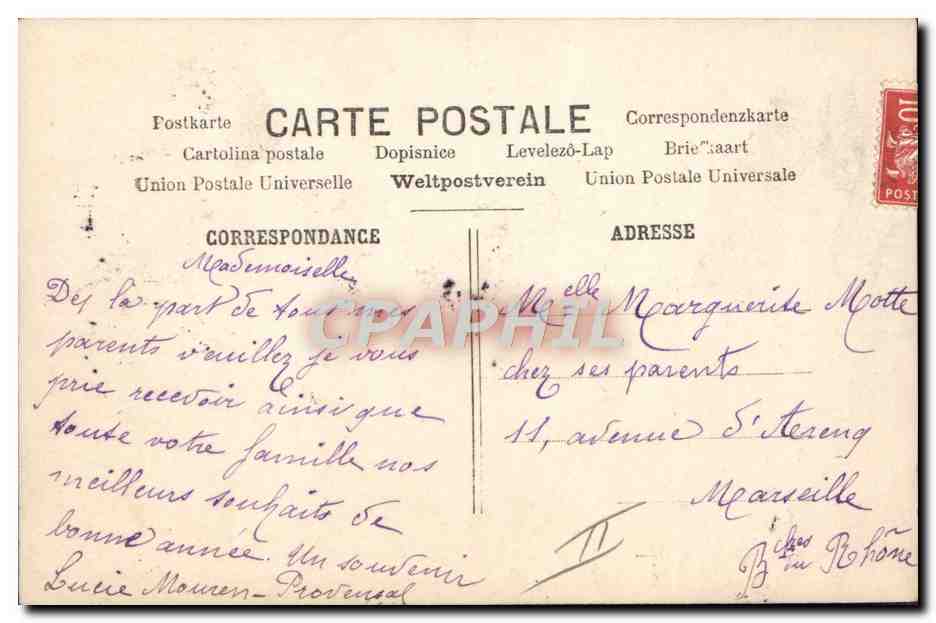 Postkarte CARTE POSTALE Correspondenzkarte
Cartolina postale Dopisnice Levelezō-Lap Briefkaart
Union Postale Universelle Weltpostverein Union Postale Universale
CORRESPONDANCE
Mademoiselle,
De la part de tous mes
parents veuillez je vous
prie recevoir ainsi que
toute votre famille nos
meilleurs souhaits de
bonne année. Un souvenir
Lucie Mouren-Provensal
ADRESSE
Melle Marguerite Motte
chez ses parents
11, avenue d'Arenq
Marseille
Bches du Rhône
II
10
POST
CPAPHIL